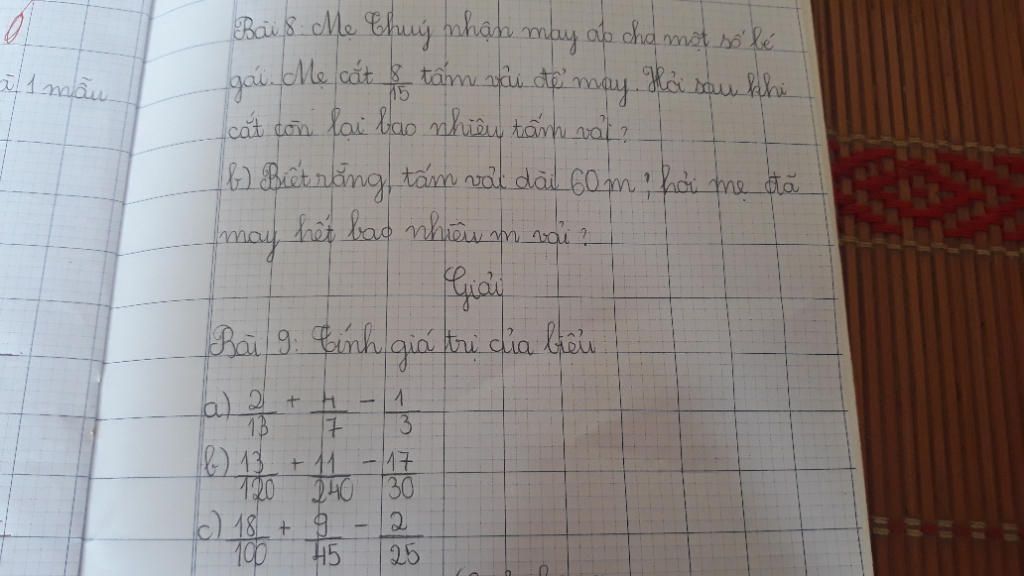 ã 1 mẫu
Bài 8. Mẹ Thuý nhận may áo cho một số bé
gái. Mẹ cắt 8/15 tấm vải để may. Hỏi sau khi
cắt còn lại bao nhiêu tấm vải?
b) Biết rằng, tấm vải dài 60m; hỏi mẹ đã
may hết bao nhiêu m vải?
Giải
Bài 9: Tính giá trị của biểu
a) 2/13 + 4/7 - 1/3
b) 13/120 + 11/240 - 17/30
c) 18/100 + 9/45 - 2/25